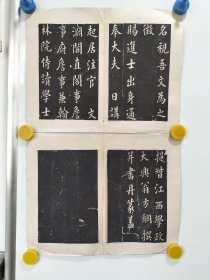 名觀吾文爲之
徵
賜進士出身通
奉大夫 日講
起居注官 文
淵閣直閣事詹
事府詹事兼翰
林院侍讀學士
提督江西學政
大興翁方綱撰
并書丹篆蓋